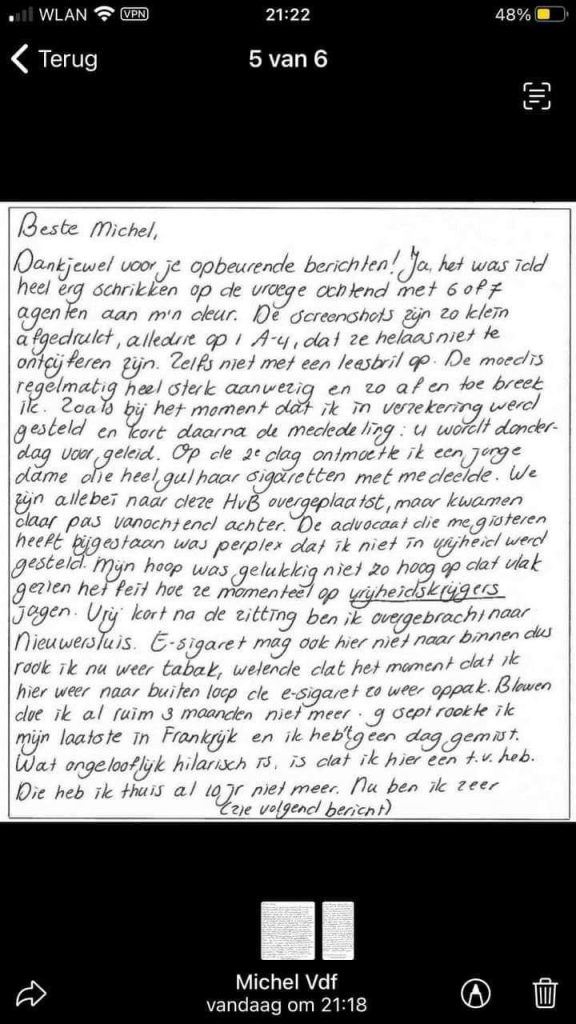 WLAN VPN 21:22 48%
Terug 5 van 6
Beste Michel,
Dankjewel voor je opbeurende berichten! Ja, het was idd
heel erg schrikken op de vroege ochtend met 6 of 7
agenten aan m'n deur. De screenshots zijn zo klein
afgedrukt, alledrie op 1 A-4, dat ze helaas niet te
ontcijferen zijn. Zelfs niet met een leesbril op. De moed is
regelmatig heel sterk aanwezig en zo af en toe breek
ik. Zoals bij het moment dat ik in verzekering werd
gesteld en kort daarna de mededeling: u wordt donder-
dag voorgeleid. Op de 2e dag ontmoette ik een jonge
dame die heel gul haar sigaretten met me deelde. We
zijn allebei naar deze HvB overgeplaatst, maar kwamen
daar pas vanochtend achter. De advocaat die me gisteren
heeft bijgestaan was perplex dat ik niet in vrijheid werd
gesteld. Mijn hoop was gelukkig niet zo hoog op dat vlak
gezien het feit hoe ze momenteel op vrijheidskrijgers
jagen. Vrij kort na de zitting ben ik overgebracht naar
Nieuwersluis. E-sigaret mag ook hier niet naar binnen dus
rook ik nu weer tabak, wetende dat het moment dat ik
hier weer naar buiten loop de e-sigaret zo weer oppak. Blowen
doe ik al ruim 3 maanden niet meer. 9 sept rookte ik
mijn laatste in Frankrijk en ik heb 't geen dag gemist.
Wat ongelooflijk hilarisch is, is dat ik hier een t.v. heb.
Die heb ik thuis al 10 jr niet meer. Nu ben ik zeer
(zie volgend bericht)
Michel Vdf
vandaag om 21:18